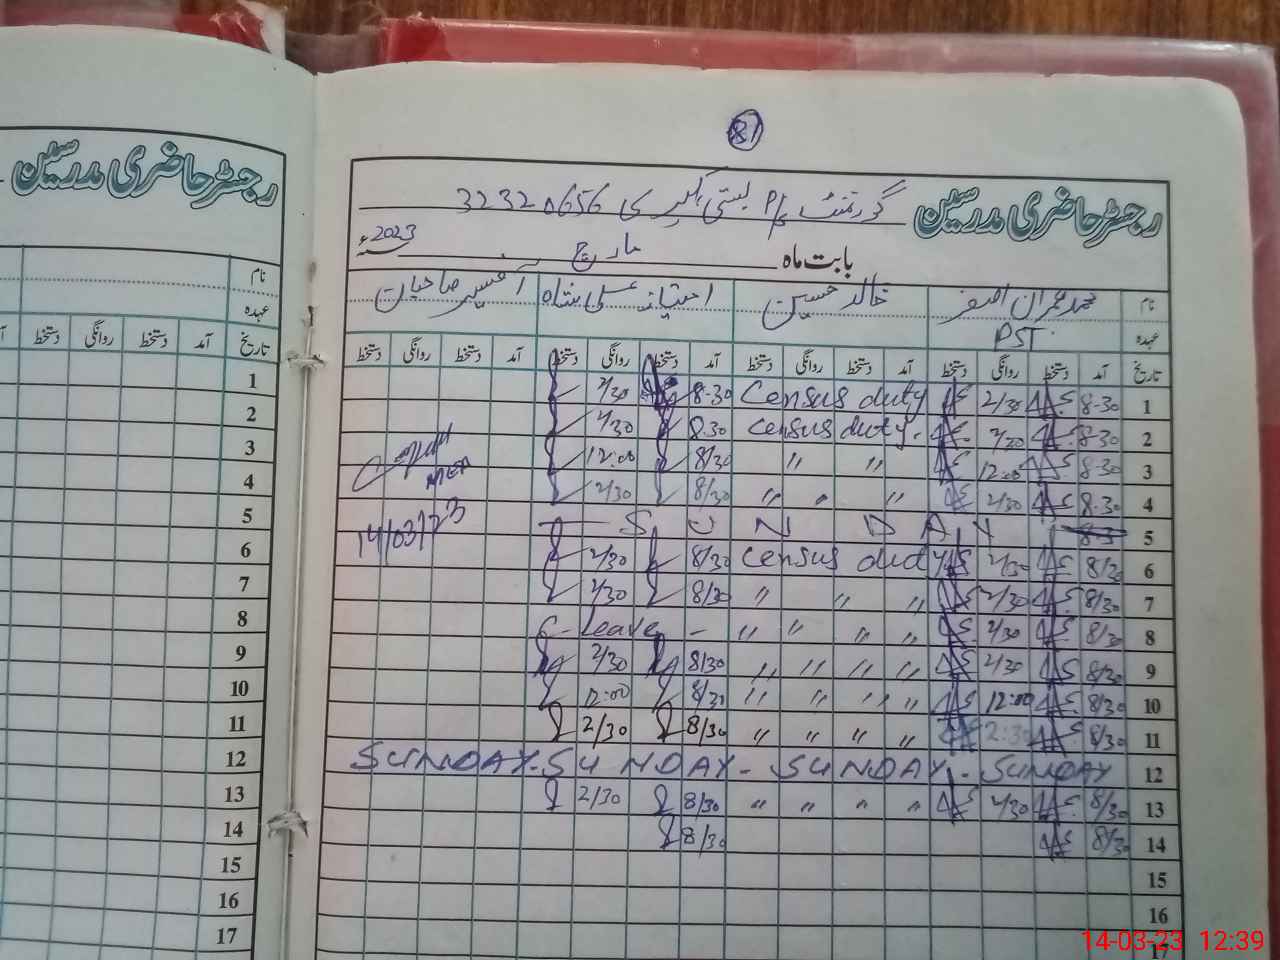 81
رجسٹر حاضری مدرسین
رجسٹر حاضری مدرسین گورنمنٹ P/S بستی 32320656
بابت ماہ مارچ 2023ء
نام محمد عمران اصغر خالد حسین امتیاز علی شاہ آفیسر صاحبان
عہدہ PST
تاریخ آمد دستخط روانگی دستخط آمد دستخط روانگی دستخط آمد دستخط روانگی دستخط آمد دستخط روانگی دستخط
1 8-30 2/30 Census duty 8-30 2/30
2 8-30 2/30 Census duty. 8.30 2/30
3 8-30 12:00 " " 8/30 12:00
4 8-30 2/30 " " " 8/30 2/30
5 8-3 SUNDAY
6 8/30 2/30 Census duty 8/30 2/30
7 8/30 2/30 " " " 8/30 2/30
8 8/30 2/30 " " " " C-Leave -
9 8/30 2/30 " " " " 8/30 2/30
10 8/30 12:00 " " " " 8/30 12:00
11 8/30 2:30 " " " " 8/30 2/30
12 SUNDAY. SUNDAY - SUNDAY. SUNDAY
13 8/30 2/30 " " " " 8/30 2/30
14 8/30 8/30
15
16
17
MEA
14/03/23
نام
عہدہ
تاریخ آمد دستخط روانگی دستخط
1
2
3
4
5
6
7
8
9
10
11
12
13
14
15
16
17
14-03-23 12:39